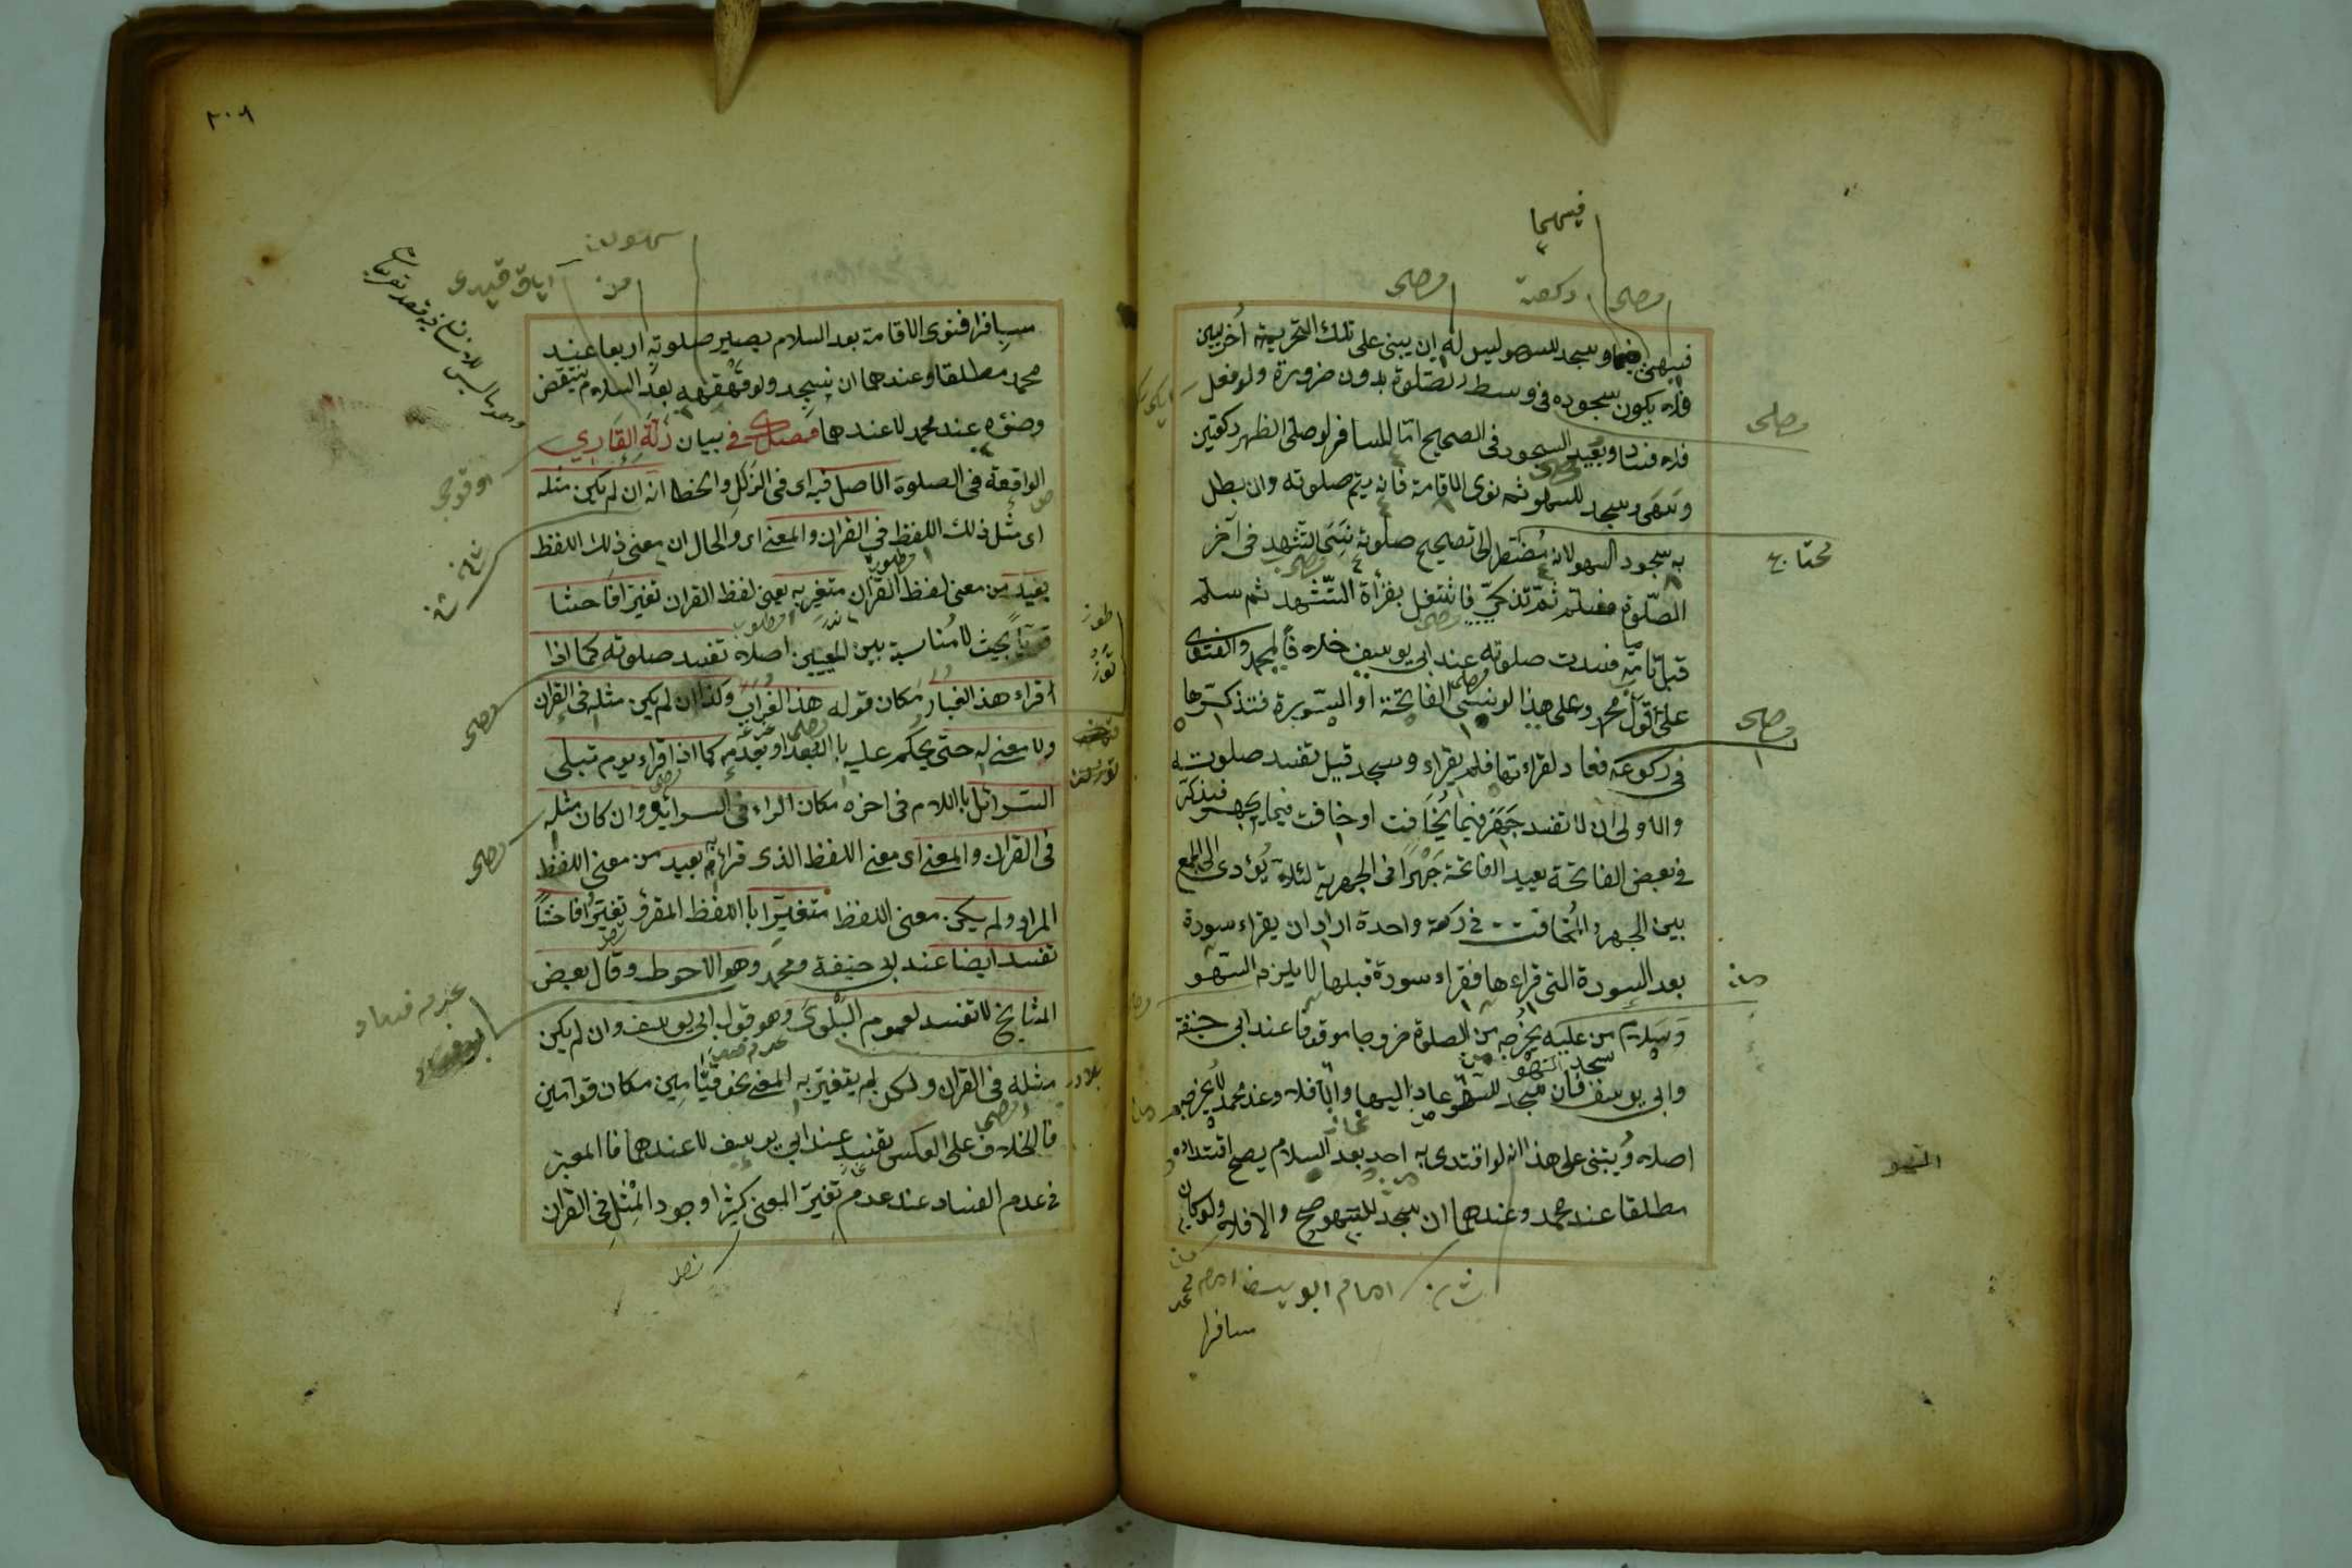 فيهما
ركعة
مصلى
مصلى
فسهى فيهما وسجد للسهو ليس له ان يبنى على تلك التحريمة أخريين
فانه يكون سجوده فى وسط الصلوة بدون ضرورة ولو فعل
ويعيد السجود فى الصحيح امّا المسافر لو صلى الظهر ركعتين
وسَهَى وسجد للسهو ثم نوى الاقامة فانه يتم صلوته وان بطل
به سجود السهو لانه مُضْطَر الى تصحيح صلوته نَسِىَ التشهد فى آخر
الصّلوة فسلّم ثمّ تذكّر فاشتغل بقرأة التّشهد ثم سلم
قبل تمامه فسدت صلوته عند ابى يوسف خلافًا لمحمد والفتوى
على قول محمد وعلى هذا لو نسى الفاتحة او السّورة فتذكّرها
فى ركوعه فعاد لقراءتها فلم يقراء وسجد قيل تفسد صلوته
والاولى ان لا تفسد جَهَرَ فيما يُخَافَت او خافت فيما يجهر فتذكّر
فى بعض الفاتحة يعيد الفاتحة جَهْرًا فى الجهرية لئلا يُؤدى الى الجمع
بين الجهر والمُخافت فى ركعة واحدة اراد ان يقراء سورة
بعد السورة التى قراءها فقراء سورة قبلها لا يلزم السّهو
وسَلام من عليه يخرجه من الصلوة خروجا موقوفا عند ابى حنيفة
وابى يوسف فان سجد للسّهو عاد اليها والّا فلا وعند محمد لا يُخرجه
اصلا ويُبتنى على هذا انه لو اقتدى به احد بعد السلام يصح اقتداؤه
مطلقا عند محمد وعندهما ان سجد للسّهو صح والا فلا ولو كان
مسافرا
محتاج
مصلى
مصلى
السهو
امام ابو يوسف امام محمد
٢٠٨
مسافرا فنوى الاقامة بعد السلام يصير صلوته اربعا عند
محمد مطلقا وعندهما ان سجد ولو قهقهه بعد السلام ينتقض
وضؤه عند محمد لا عندهما فصل فى بيان زَلَّة القَارِي
الواقعة فى الصلوة الاصل فيه اى فى الزَّلَل والخطا انه ان لم يكن مثله
اى مثل ذلك اللفظ فى القران والمعنى اى والحال ان معنى ذلك اللفظ
بعيد من معنى لفظ القرآن متغير به يعنى لفظ القران تغيرا فاحشا
قويّا بحيث لا مُناسبة بين المعنيين اصلا تفسد صلوته كما اذا
اقراء هذا الغبار مكان قوله هذا الغراب وكذا ان لم يكن مثله فى القران
ولا معنى له حتى يحكم عليه بالبعد او بعدمه كما اذا قراء يوم تبلى
السّرائل باللام فى اخره مكان الراء فى السرائر وان كان مثله
فى القران والمعنى اى معنى اللفظ الذى قراءه بعيد من معنى اللفظ
المراد ولم يكن معنى اللفظ متغيّرا باللفظ المقرؤ تغيّرًا فاحشًا
تفسد ايضا عند ابى حنيفة ومحمد وهو الاحوط وقال بعض
المشايخ لا تفسد لعموم البَلْوَى وهو قول ابى يوسف وان لم يكن
مثله فى القران ولكن لم يتغير به المعنى نحو قيّامين مكان قوامين
فالخلاف على العكس تفسد عند ابى يوسف لا عندهما فالمعتبر
فى عدم الفساد عند عدم تغيّر المعنى كثيرا وجود المِثل فى القران
مصلى
مصلى
عدم فساد